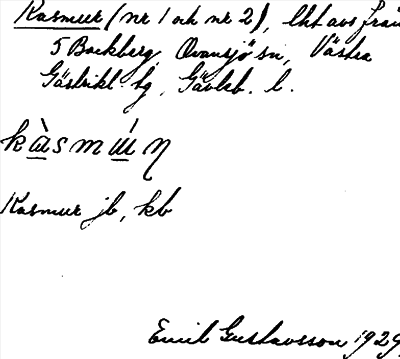 Kasmur (nr 1 och nr 2), lht avs från
5 Backberg, Ovansjö sn, Västra
Gästrikl. hg, Gävleb. l.
kàsmúṇ
Kasmur jb, kb
Emil Gustavsson 1929